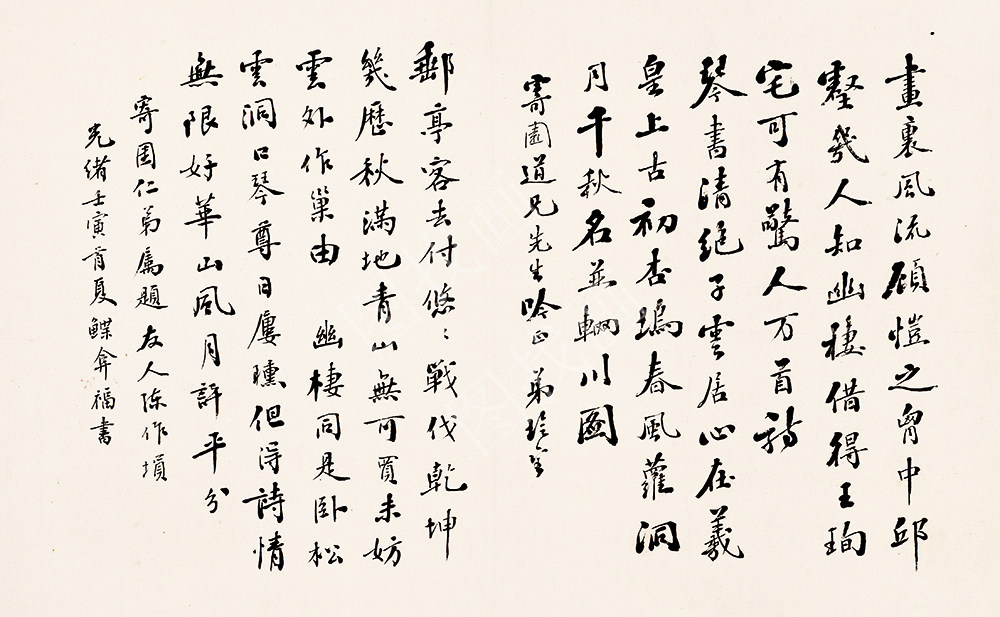 畫裏風流顧愷之胷中邱
壑幾人知幽棲借得王珣
宅可有驚人万首詩
琴書清絕子雲居心在羲
皇上古初杏塢春風蘿洞
月千秋名並輞川圖
寄園道兄先生吟正弟
郵亭客去付悠〻戰伐乾坤
幾歷秋滿地青山無可買未妨
雲外作巢由 幽棲同是臥松
雲洞口琴尊日屢曛但得詩情
無限好華山風月許平分
寄園仁弟屬題友人陳作塤
光緒壬寅首夏鰈弇福書